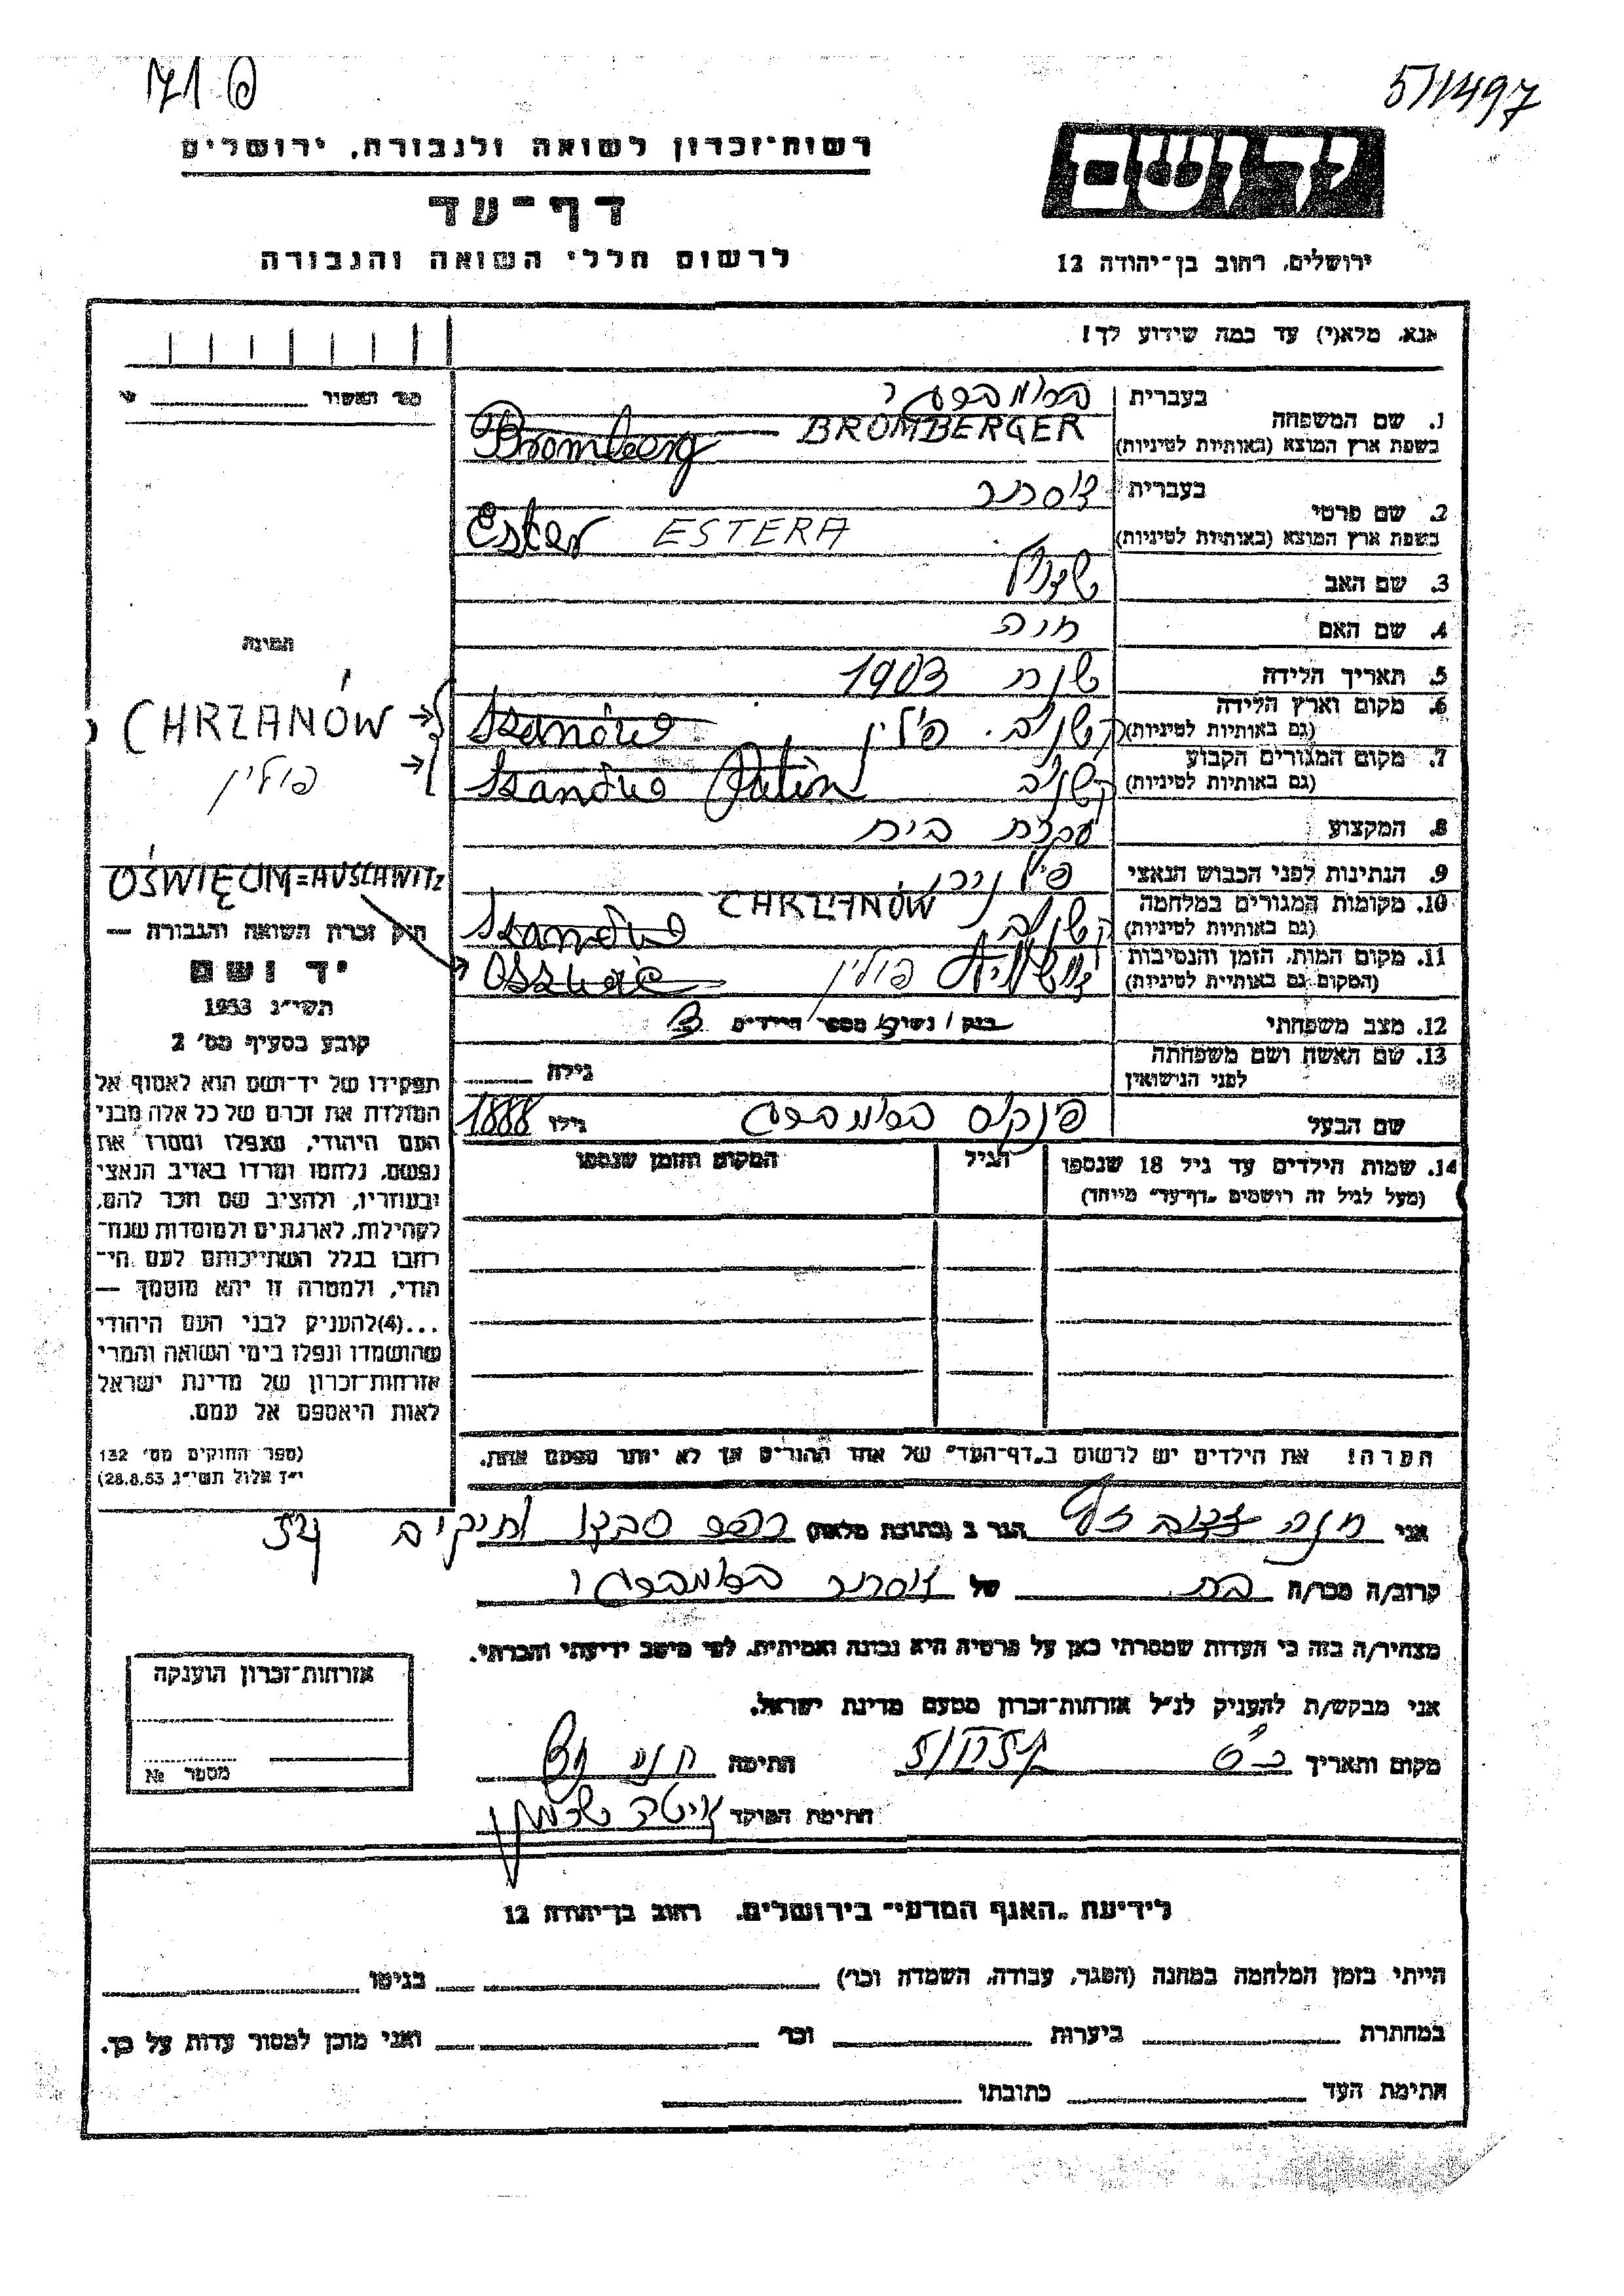 5/1497
רשות־זכרון לשואה ולגבורה, ירושלים
דף־עד
לרשום חללי השואה והגבורה
יד ושם
ירושלים, רחוב בן־יהודה 12
אנא, מלא(י) עד כמה שידוע לך!
מס' התאשיר
1. שם המשפחה
בעברית
בשפת ארץ המוצא (באותיות לטיניות) BROMBERGER Bromberg
2. שם פרטי
בעברית אסתר
בשפת ארץ המוצא (באותיות לטיניות) ESTERA Ester
3. שם האב
4. שם האם חנה
5. תאריך הלידה שנת 1903
6. מקום וארץ הלידה
(גם באותיות לטיניות)
7. מקום המגורים הקבוע
(גם באותיות לטיניות)
8. המקצוע עקרת בית
9. הנתינות לפני הכבוש הנאצי
10. מקומות המגורים במלחמה CHRZANÓW
(גם באותיות לטיניות)
11. מקום המות, הזמן והנסיבות פולין
(המקום גם באותיות לטיניות)
12. מצב משפחתי נשוי/אה מספר הילדים 3
13. שם האשה ושם משפחתה
לפני הנישואין גילה
שם הבעל פנקס ברומברגר גילו 1888
14. שמות הילדים עד גיל 18 שנספו
(מעל לגיל זה רושמים „דף־עד” מיוחד)
הגיל
המקום והזמן שנספו
תמונה
CHRZANÓW
פולין
OŚWIĘCIM=AUSCHWITZ
חוק זכרון השואה והגבורה —
יד ושם
תשי״ג 1953
קובע בסעיף מס' 2
תפקידו של יד־ושם הוא לאסוף אל
המולדת את זכרם של כל אלה מבני
העם היהודי, שנפלו ומסרו את
נפשם, נלחמו ומרדו באויב הנאצי
ובעוזריו, ולהציב שם וזכר להם,
לקהילות, לארגונים ולמוסדות שנח־
רבו בגלל השתייכותם לעם הי־
הודי, ולמטרה זו יהא מוסמך —
...(4)להעניק לבני העם היהודי
שהושמדו ונפלו בימי השואה והמרי
אזרחות־זכרון של מדינת ישראל
לאות היאספם אל עמם.
(ספר החוקים מס' 132
י״ז אלול תשי״ג 28.8.53)
הערה! את הילדים יש לרשום ב„דף־העד” של אחד ההורים אך לא יותר מפעם אחת.
אני חנה הגר ב (כתובת מלאה)
קרוב/ה מכר/ה בת של אסתר ברומברגר
מצהיר/ה בזה כי העדות שמסרתי כאן על פרטיה היא נכונה ואמיתית, לפי מיטב ידיעתי והכרתי.
אני מבקש/ת להעניק לנ״ל אזרחות־זכרון מטעם מדינת ישראל.
מקום ותאריך חתימה
חתימת הפוקד
אזרחות־זכרון הוענקה
מספר №
לידיעת „האגף המדעי” בירושלים, רחוב בן־יהודה 12
הייתי בזמן המלחמה במחנה (הסגר, עבודה, השמדה וכו') בגיטו
במחתרת ביערות וכו' ואני מוכן למסור עדות על כך.
חתימת העד כתובתו